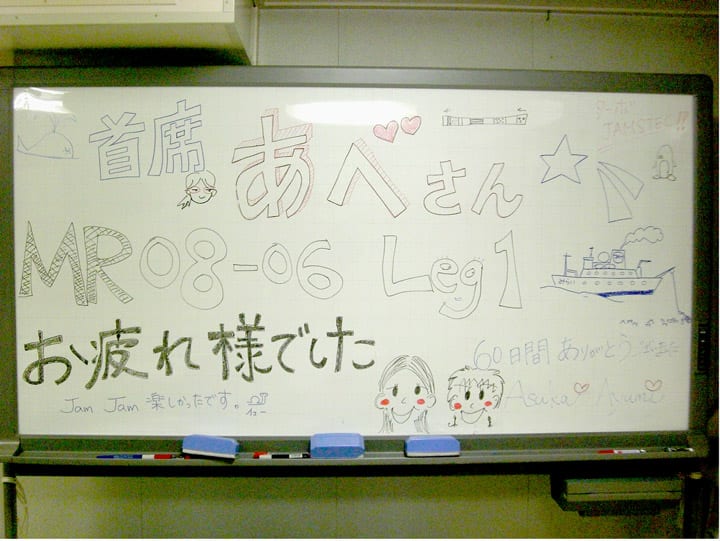 首席 あべさん
ターボ
JAMSTEC!!
MR08-06 Leg1
みらい
お疲れ様でした
60日間 ありがとうございました
Jam Jam 楽しかったです。
Asuka Ayumi